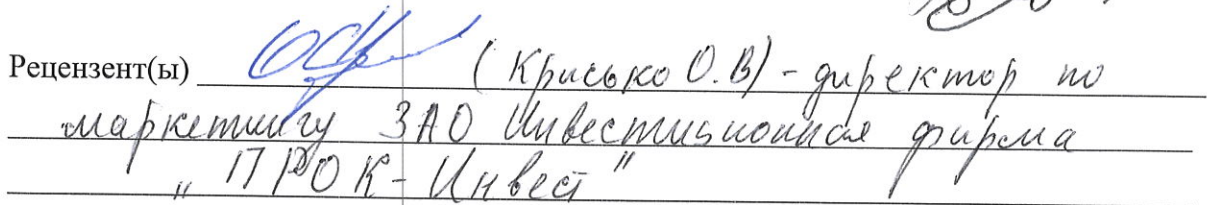 Рецензент(ы) (Крисько О.В) - директор по
маркетингу ЗАО Инвестиционная фирма
„ ПРОК - Инвест "